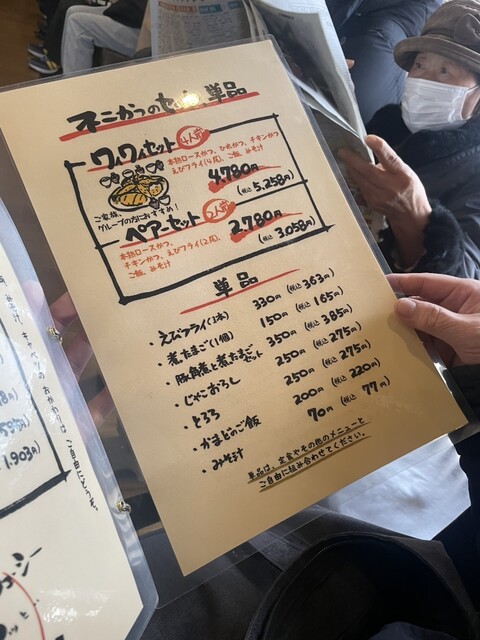 不こかつのセット、単品
ワイワイセット 4人前
本熟ロースかつ、ひれかつ、チキンかつ
えびフライ(4尾)、ご飯、みそ汁
4,780円
(税込 5,258円)
ご家族、
グループの方におすすめ!
ペアーセット 2人前
本熟ロースかつ、
チキンかつ、えびフライ(2尾)、
ご飯、みそ汁
2,780円
(税込 3,058円)
単品
・えびフライ(1本) 330円 (税込 363円)
・煮たまご(1個) 150円 (税込 165円)
・豚角煮と煮たまごセット 350円 (税込 385円)
・じゃこおろし 250円 (税込 275円)
・とろろ 250円 (税込 275円)
・かまどのご飯 200円 (税込 220円)
・みそ汁 70円 (税込 77円)
単品は、定食やその他のメニューと
ご自由に組み合わせてください。
みそ汁、キャベツのおかわりは
ご自由にどうぞ。
1,903円)